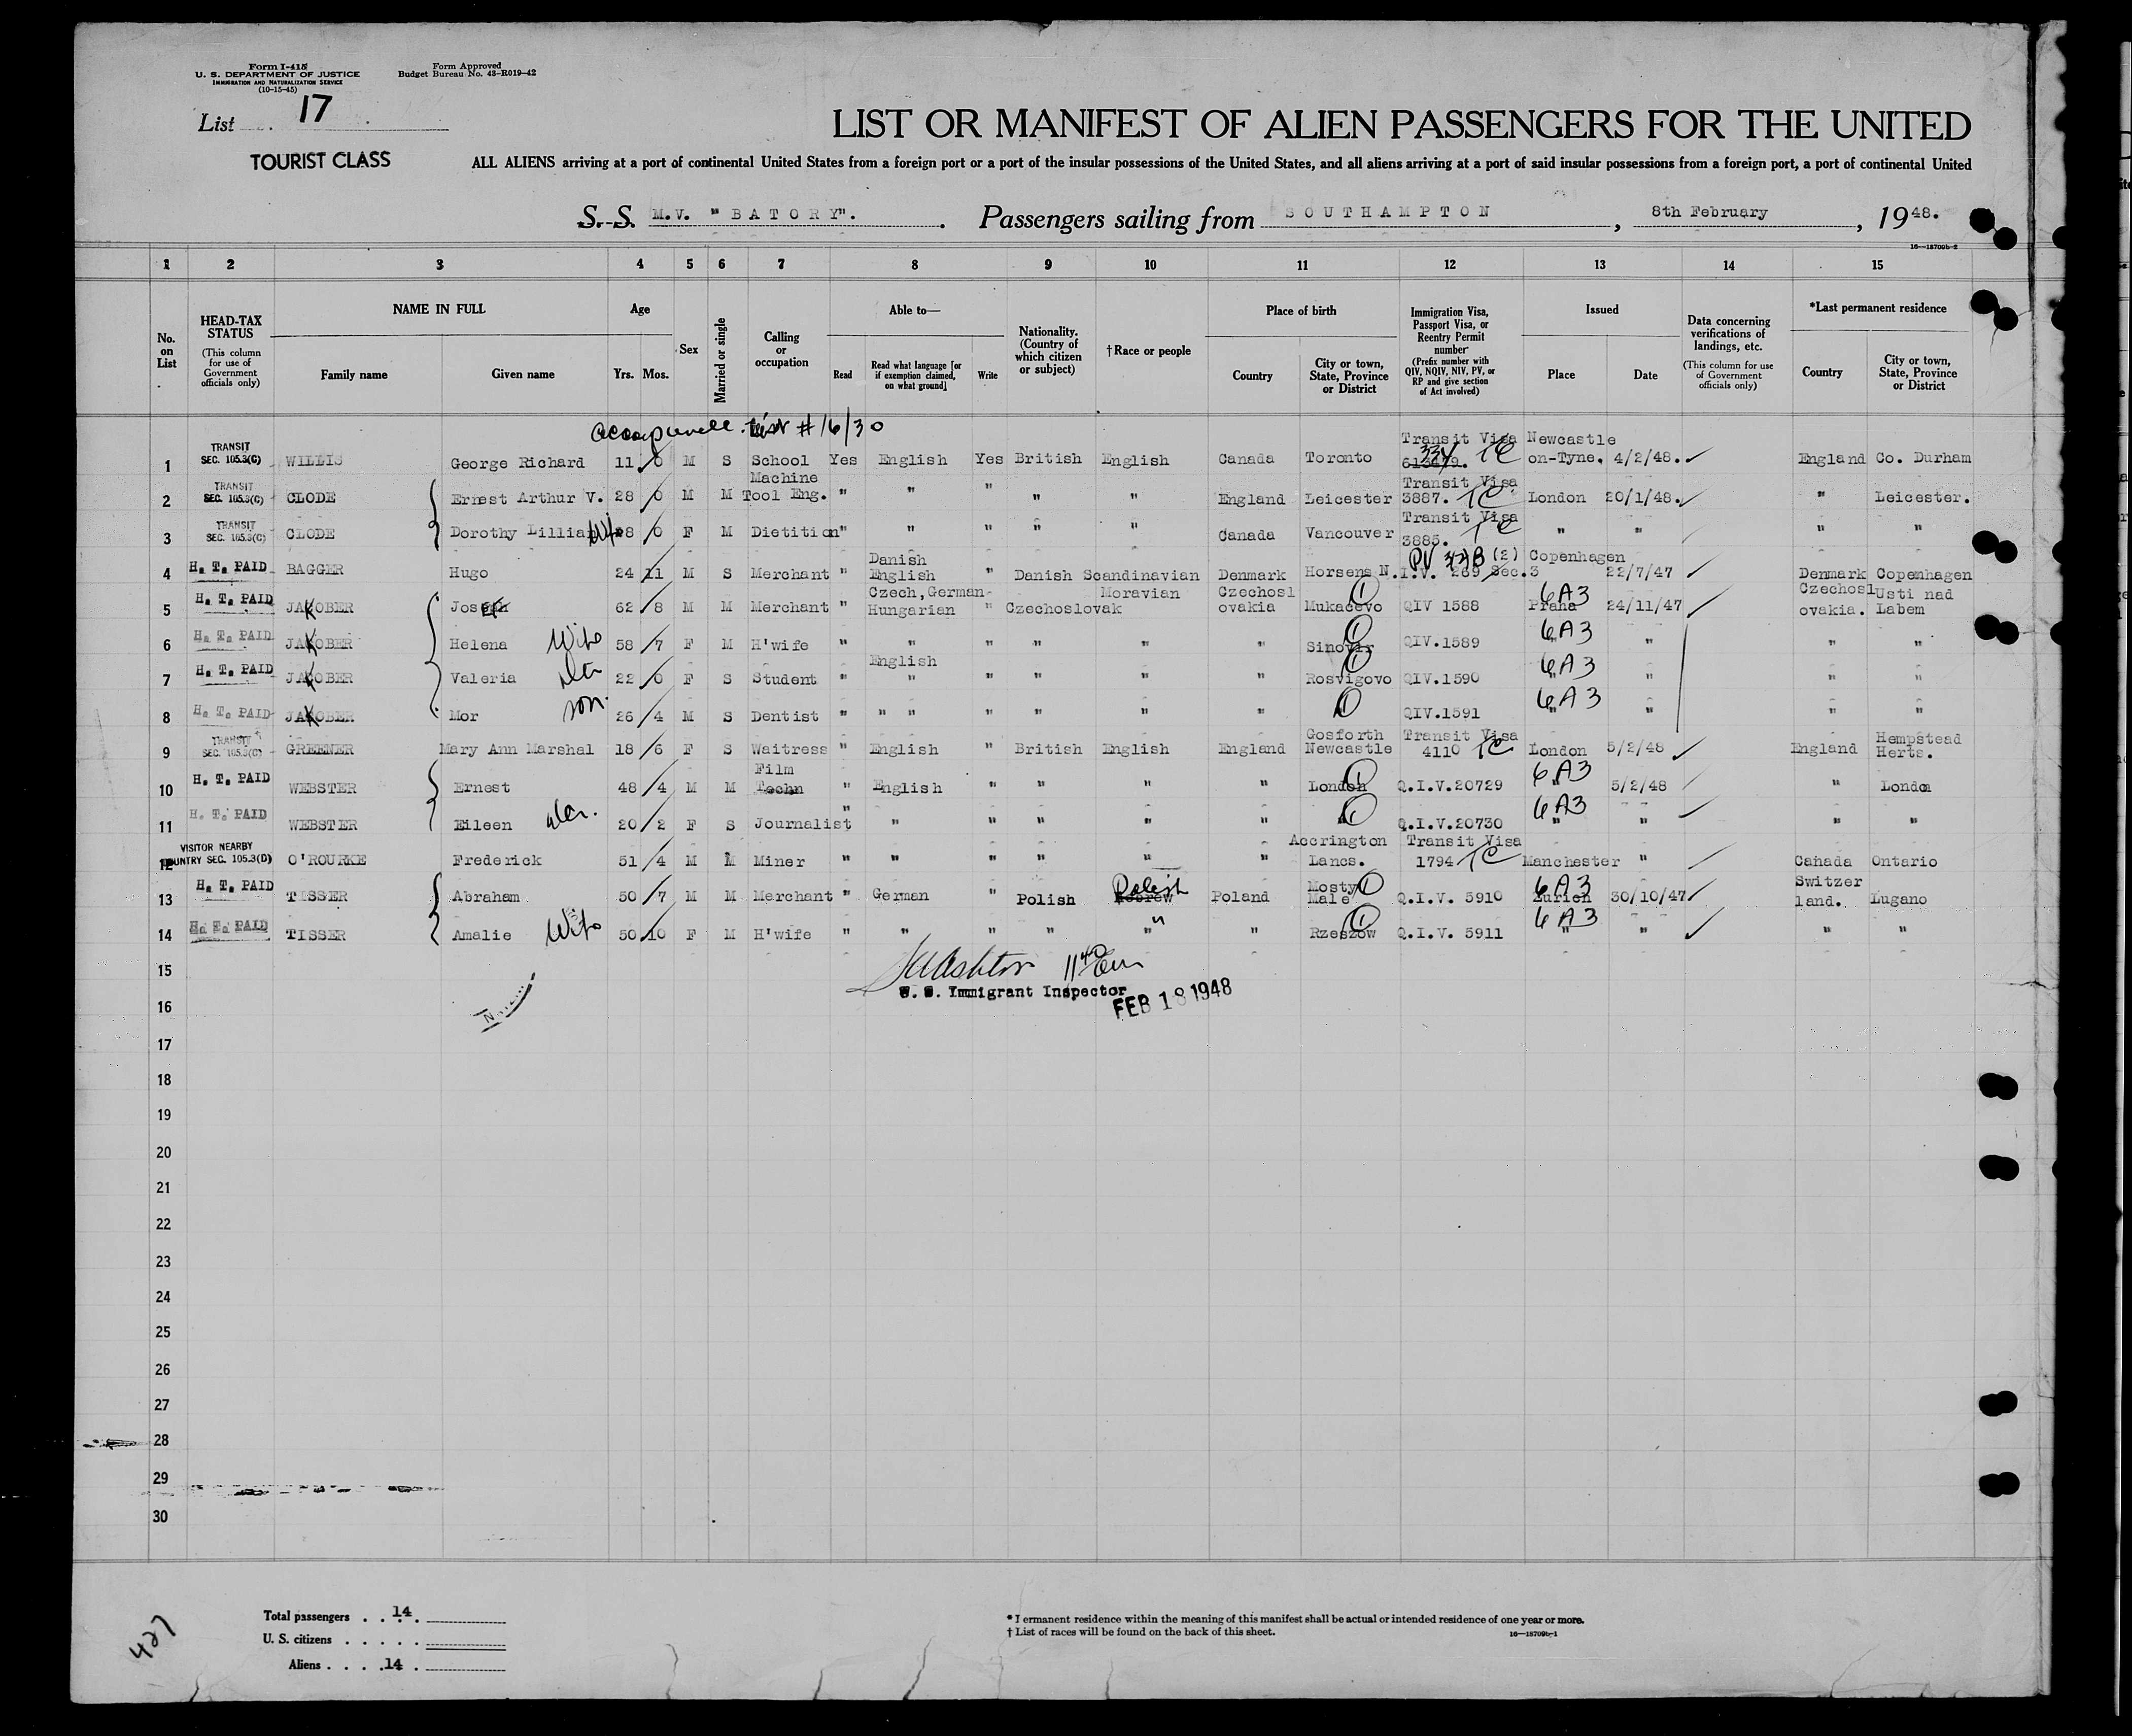 Form I-415
U. S. DEPARTMENT OF JUSTICE
IMMIGRATION AND NATURALIZATION SERVICE
(10-15-45)
Form Approved
Budget Bureau No. 43-R019-42
List 17
TOURIST CLASS
LIST OR MANIFEST OF ALIEN PASSENGERS FOR THE UNITED
ALL ALIENS arriving at a port of continental United States from a foreign port or a port of the insular possessions of the United States, and all aliens arriving at a port of said insular possessions from a foreign port, a port of continental United
S. S. M.V. "BATORY". Passengers sailing from SOUTHAMPTON, 8th February, 1948.
1 2 3 4 5 6 7 8 9 10 11 12 13 14 15
No. on List
HEAD-TAX STATUS (This column for use of Government officials only)
NAME IN FULL Family name Given name
Age Yrs. Mos.
Sex
Married or single
Calling or occupation
Able to— Read Read what language [or if exemption claimed, on what ground] Write
Nationality. (Country of which citizen or subject)
†Race or people
Place of birth Country City or town, State, Province or District
Immigration Visa, Passport Visa, or Reentry Permit number (Prefix number with QIV, NQIV, NIV, PV, or RP and give section of Act involved)
Issued Place Date
Data concerning verifications of landings, etc. (This column for use of Government officials only)
*Last permanent residence Country City or town, State, Province or District
List #16/30
1 TRANSIT SEC. 105.3(C) WILLIS George Richard 11 0 M S School Yes English Yes British English Canada Toronto Transit Visa 334 TC Newcastle on-Tyne. 4/2/48. England Co. Durham
2 TRANSIT SEC. 105.3(C) CLODE Ernest Arthur V. 28 0 M M Machine Tool Eng. " " " " " England Leicester Transit Visa 3887. TC London 20/1/48. " Leicester.
3 TRANSIT SEC. 105.3(C) CLODE Dorothy Lillian Wife 28 0 F M Dietition " " " " " Canada Vancouver Transit Visa 3885. TC " " " "
4 H. T. PAID BAGGER Hugo 24 11 M S Merchant " Danish English " Danish Scandinavian Denmark Horsens N.I.V. 269 Sec.3 PV 338 (2) Copenhagen 22/7/47 Denmark Copenhagen
5 H. T. PAID JAKOBER Josef 62 8 M M Merchant " Czech, German Hungarian " Czechoslovak Moravian Czechoslovakia Mukacevo QIV 1588 6A3 Praha 24/11/47 Czechoslovakia. Usti nad Labem
6 H. T. PAID JAKOBER Helena Wife 58 7 F M H'wife " " " " " " Sinovir QIV.1589 6A3 " " " "
7 H. T. PAID JAKOBER Valeria dtr 22 0 F S Student " English " " " " " Rosvigovo QIV.1590 6A3 " " " "
8 H. T. PAID JAKOBER Mor son. 26 4 M S Dentist " " " " " " " " QIV.1591 6A3 " " " "
9 TRANSIT SEC. 105.3(C) GREENER Mary Ann Marshal 18 6 F S Waitress " English " British English England Gosforth Newcastle Transit Visa 4110 TC London 5/2/48 England Hempstead Herts.
10 H. T. PAID WEBSTER Ernest 48 4 M M Film Techn " English " " " " London Q.I.V.20729 6A3 " 5/2/48 " London
11 H. T. PAID WEBSTER Eileen dtr. 20 2 F S Journalist " " " " " " " Q.I.V.20730 6A3 " " " "
12 VISITOR NEARBY COUNTRY SEC. 105.3(D) O'ROURKE Frederick 51 4 M M Miner " " " " " " Accrington Lancs. Transit Visa 1794 TC Manchester " Canada Ontario
13 H. T. PAID TISSER Abraham 50 7 M M Merchant " German " Polish Hebrew Polish Poland Mosty Male Q.I.V. 5910 6A3 Zurich 30/10/47 Switzerland. Lugano
14 H. T. PAID TISSER Amalie Wife 50 10 F M H'wife " " " " " " Rzeszow Q.I.V. 5911 6A3 " " " "
15
U. S. Immigrant Inspector
FEB 18 1948
16
17
18
19
20
21
22
23
24
25
26
27
28
29
30
Total passengers . . 14 .
U. S. citizens . . . . .
Aliens . . . . 14 .
427
* Permanent residence within the meaning of this manifest shall be actual or intended residence of one year or more.
† List of races will be found on the back of this sheet.
16—18709b-1